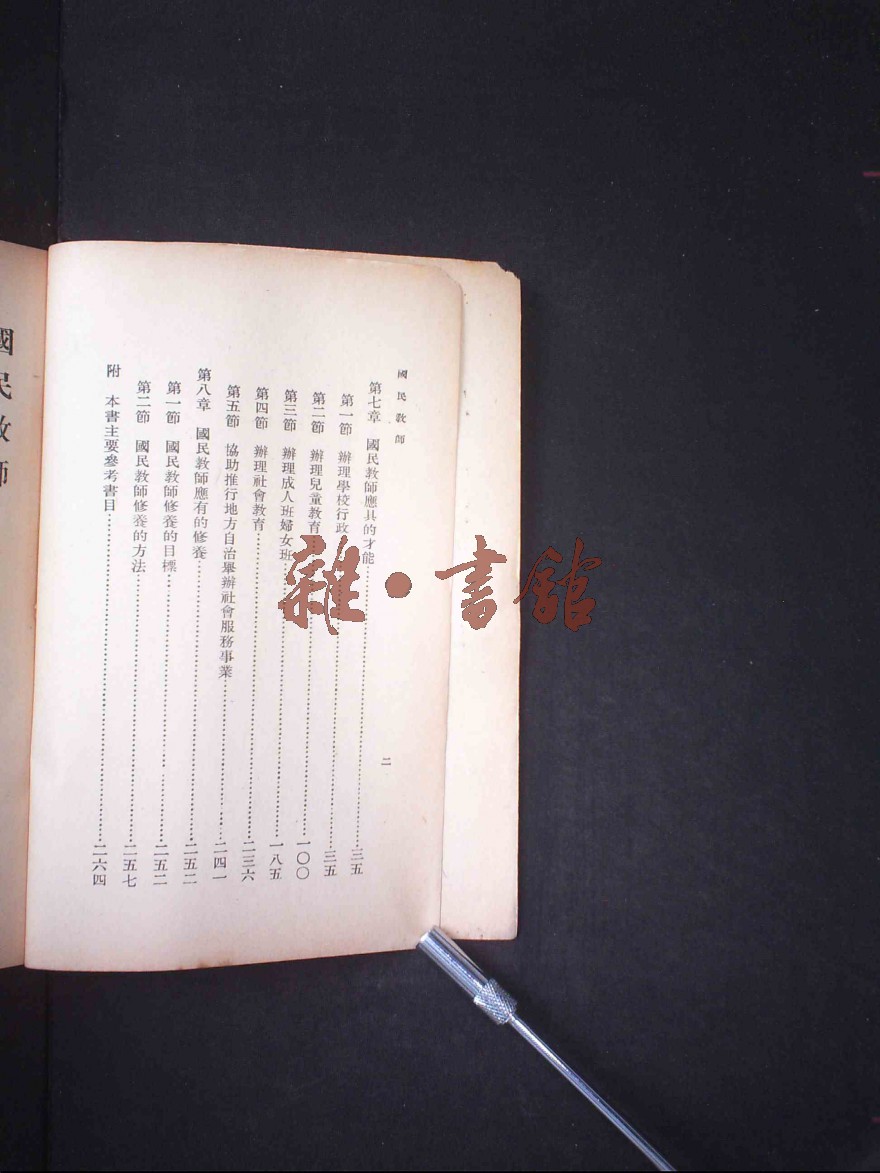 國民教師
二
第七章　國民教師應具的才能……三五
第一節　辦理學校行政……三五
第二節　辦理兒童教育……一〇〇
第三節　辦理成人班婦女班……一八五
第四節　辦理社會教育……二三六
第五節　協助推行地方自治舉辦社會服務事業……二四一
第八章　國民教師應有的修養……二五二
第一節　國民教師修養的目標……二五二
第二節　國民教師修養的方法……二五七
附　本書主要參考書目……二六四
國民教師
雜·書館